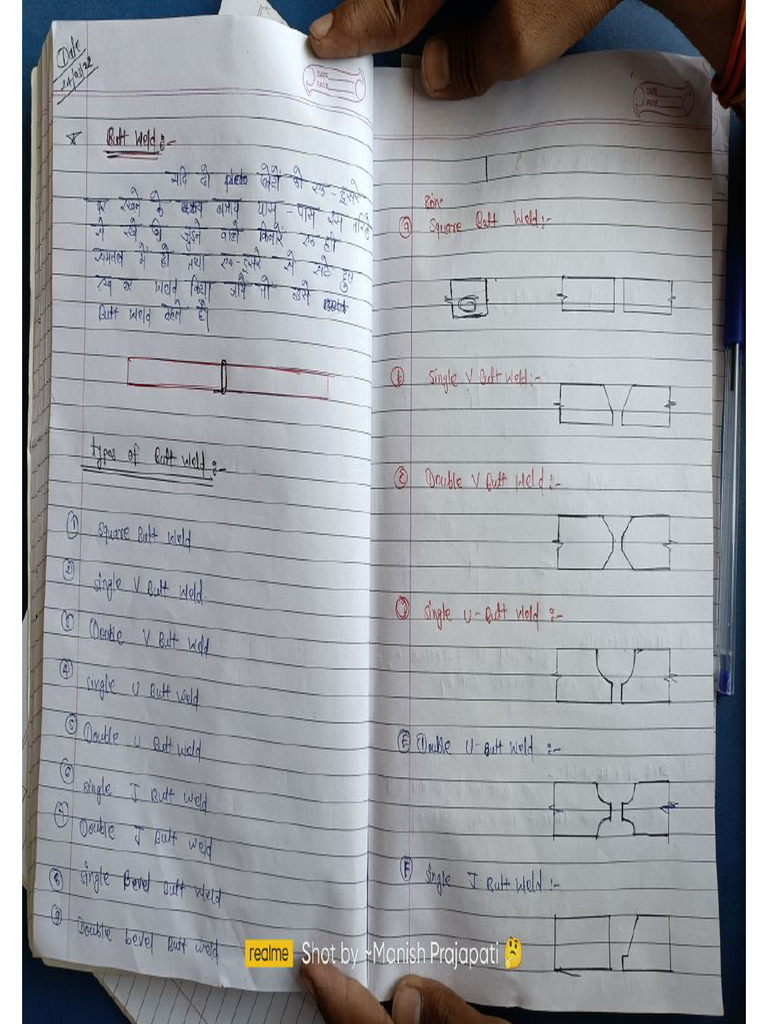 Date
24/03/22
DATE
PAGE
* Butt Weld:-
यदि दो प्लेटों को एक-दूसरे
पर रखने के बजाय पास-पास इस तरीके
से रखें कि जुड़ने वाले किनारें एक ही
समतल में हो तथा एक-दूसरे से सटे हुए
रख कर weld किया जाये तो उसे
Butt weld कहते है।
types of Butt weld:-
① Square Butt weld
② Single V Butt weld
③ Double V Butt weld
④ Single U Butt weld
⑤ Double U Butt weld
⑥ Single J Butt weld
⑦ Double J Butt weld
⑧ Single Bevel Butt weld
⑨ Double bevel Butt weld
DATE
PAGE
Square Butt Weld:-
Single V Butt Weld:-
Double V Butt Weld:-
Single U-Butt weld:-
Ⓔ Double U-Butt Weld:-
Ⓕ Single J Butt Weld:-
realme Shot by ~Manish Prajapati 🤔